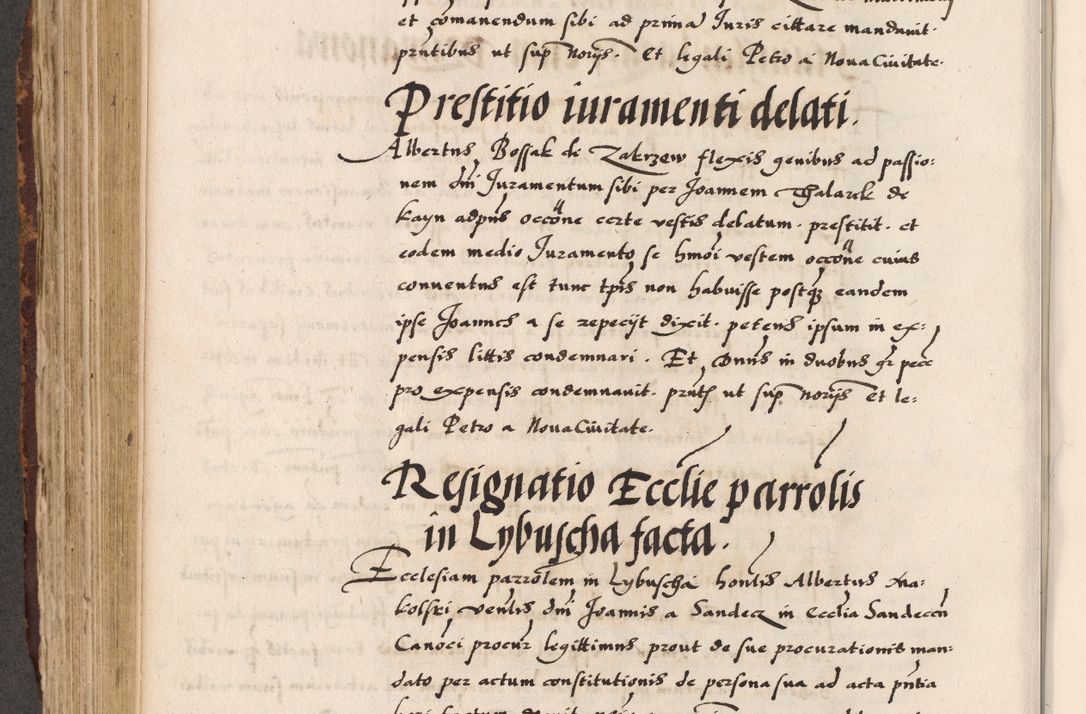 et comanendum sibi ad prima Juris cittare mandauit.
pñtibus ut sup Norÿs. Et legali Petro a Noua Ciuitate.
Prestitio iuramenti delati.
Albertus Bossak de Zakrzew flexis genibus ad passio:
nem dñi Juramentum sibi per Joannem Thalarek de
kayn adpñs occõne certe vestis delatum. prestitit. et
eodem medio Juramento se hmõi vestem occõne cuius
conuentus est tunc tpis non habuisse postq eandem
ipse Joannes a se repecÿt dixit. petens ipsum in ex:
pensis littis condemnari. Et Dñns in duobus gr pece
pro expensis condemnauit. pñtƷ ut sup Norÿs Et le:
gali Petro a Noua Ciuitate.
Resignatio Ecclie parrolis
in Lybuscha facta.
Ecclesiam parrolem in Lybuscha honlis Albertus Ma:
kolski venlis dñi Joannis a Sandecz in Ecclia Sandecen
Canoci procur legittimus prout de sue procurationis man:
dato per actum constitutionis de persona sua ad acta pñtia